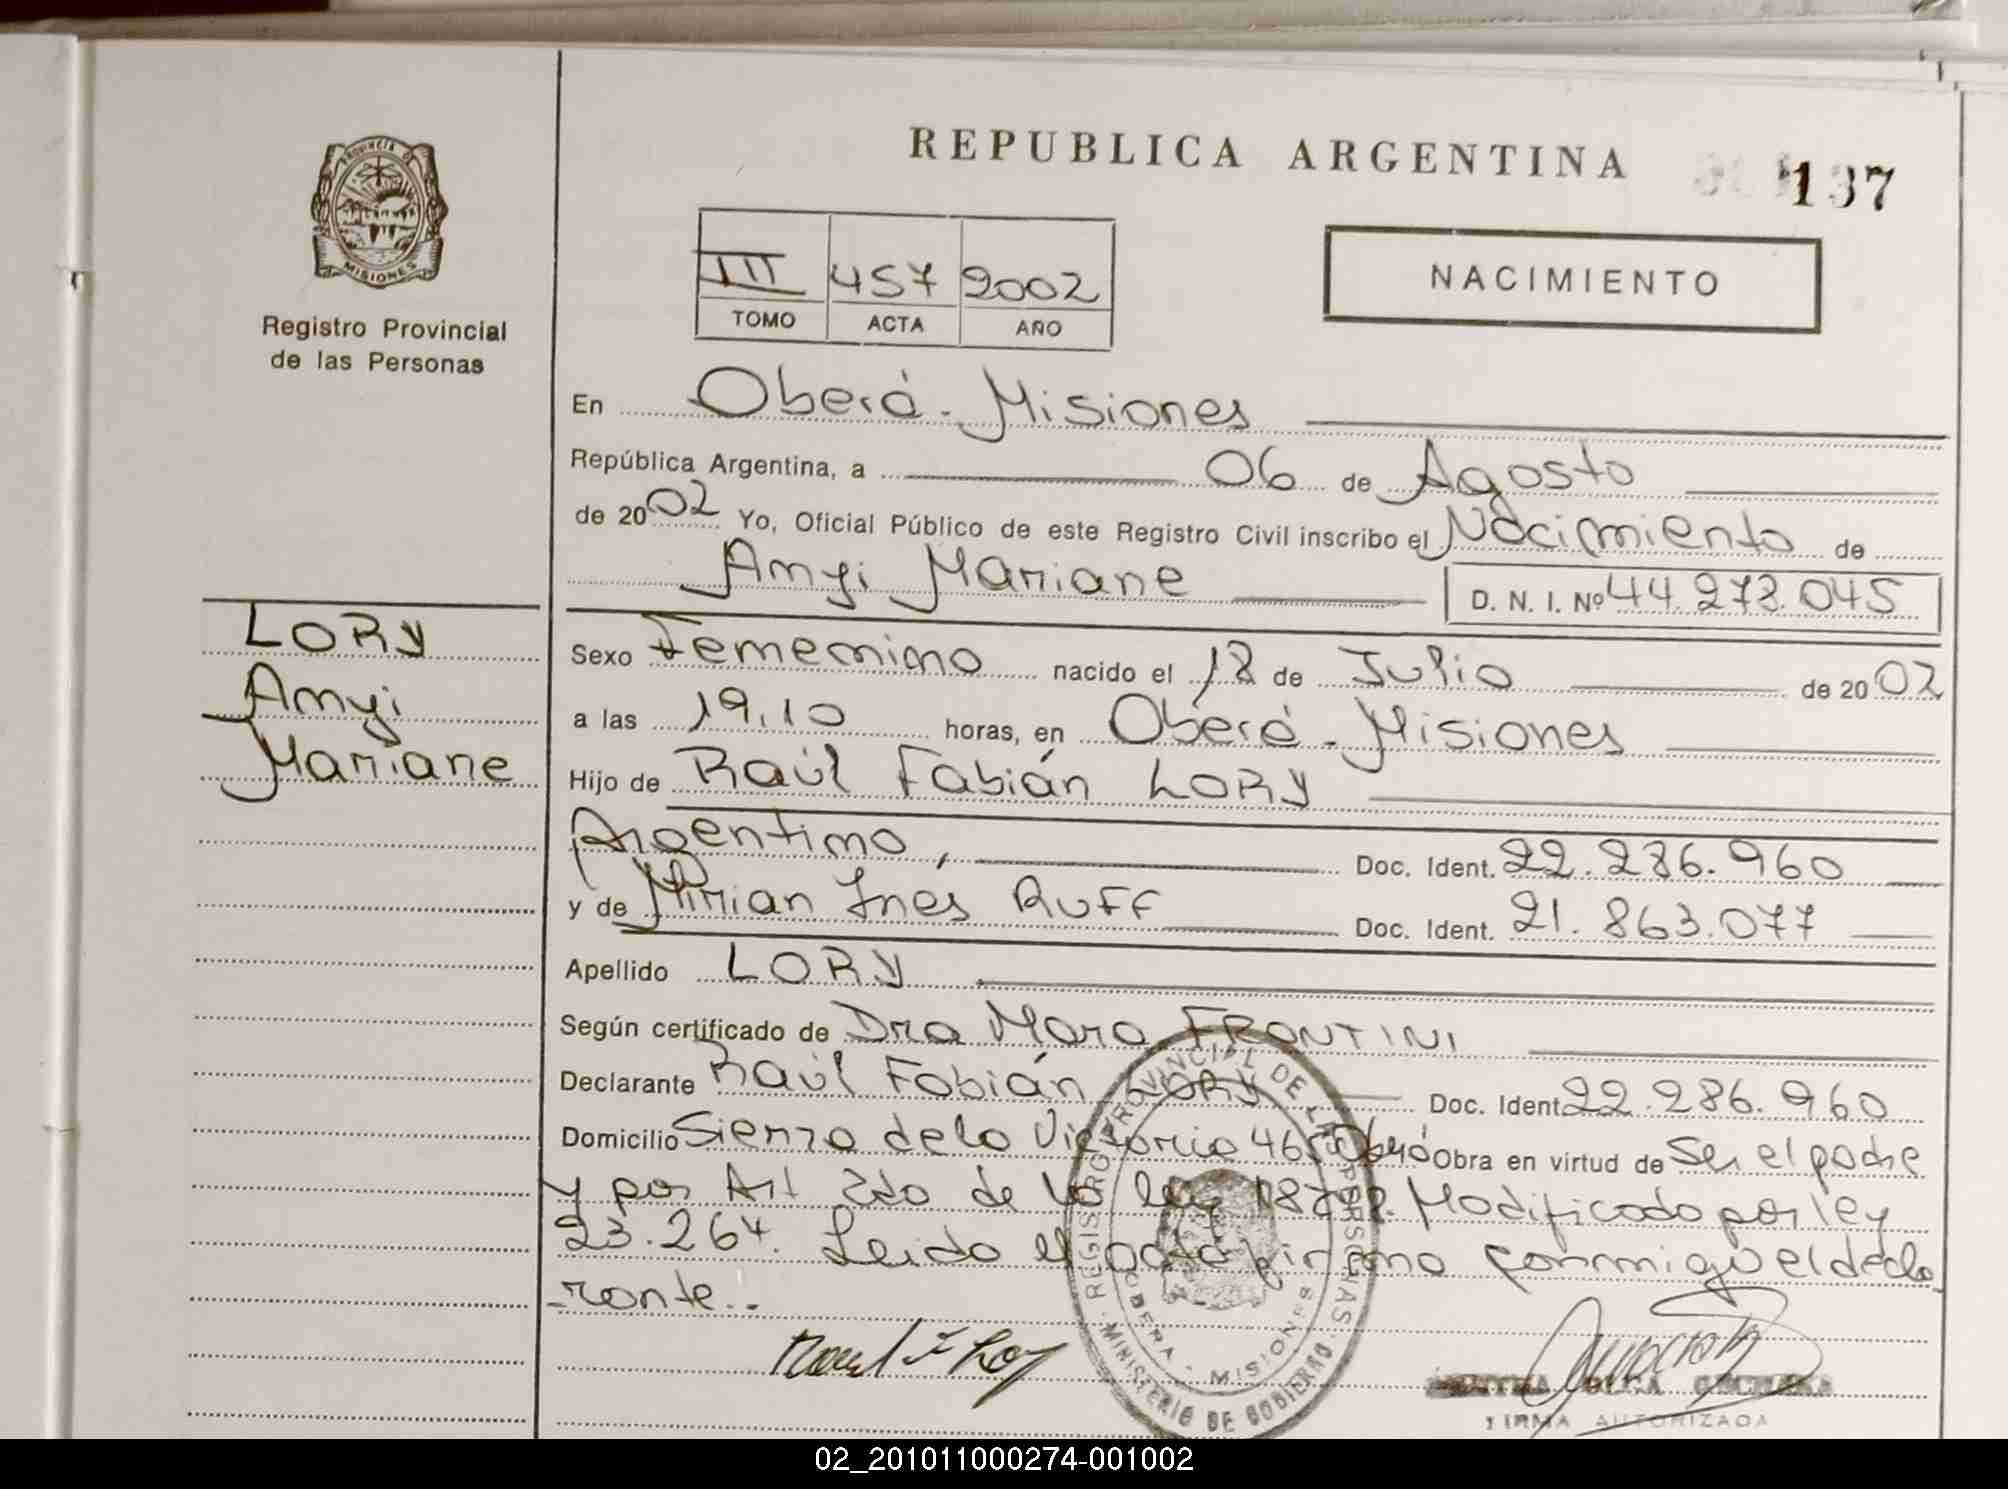 REPUBLICA ARGENTINA
137
PROVINCIA DE
MISIONES
Registro Provincial
de las Personas
III 457 2002
TOMO ACTA AÑO
NACIMIENTO
En Oberá - Misiones
República Argentina, a 06 de Agosto
de 2002 Yo, Oficial Público de este Registro Civil inscribo el Nacimiento de
Amyi Mariane D. N. I. Nº 44.273.045
LORY
Amyi
Mariane
Sexo Femenino nacido el 18 de Julio de 2002
a las 19,10 horas, en Oberá - Misiones
Hijo de Raúl Fabián LORY
Argentino, Doc. Ident. 22.286.960
y de Mirian Inés RUFF Doc. Ident. 21.863.077
Apellido LORY
Según certificado de Dra Mara FRONTINI
Declarante Raúl Fabián LORY Doc. Ident. 22.286.960
Domicilio Sierra de la Victoria Obra en virtud de Ser el padre
y por Art 2do de la ley Modificado por ley
23.264. Leido el acta firma conmigo el decla
-rante..
REGISTRO PROVINCIAL DE LAS PERSONAS
OBERA - MISIONES
MINISTERIO DE GOBIERNO
Raul F Lory
FIRMA AUTORIZADA
02_201011000274-001002